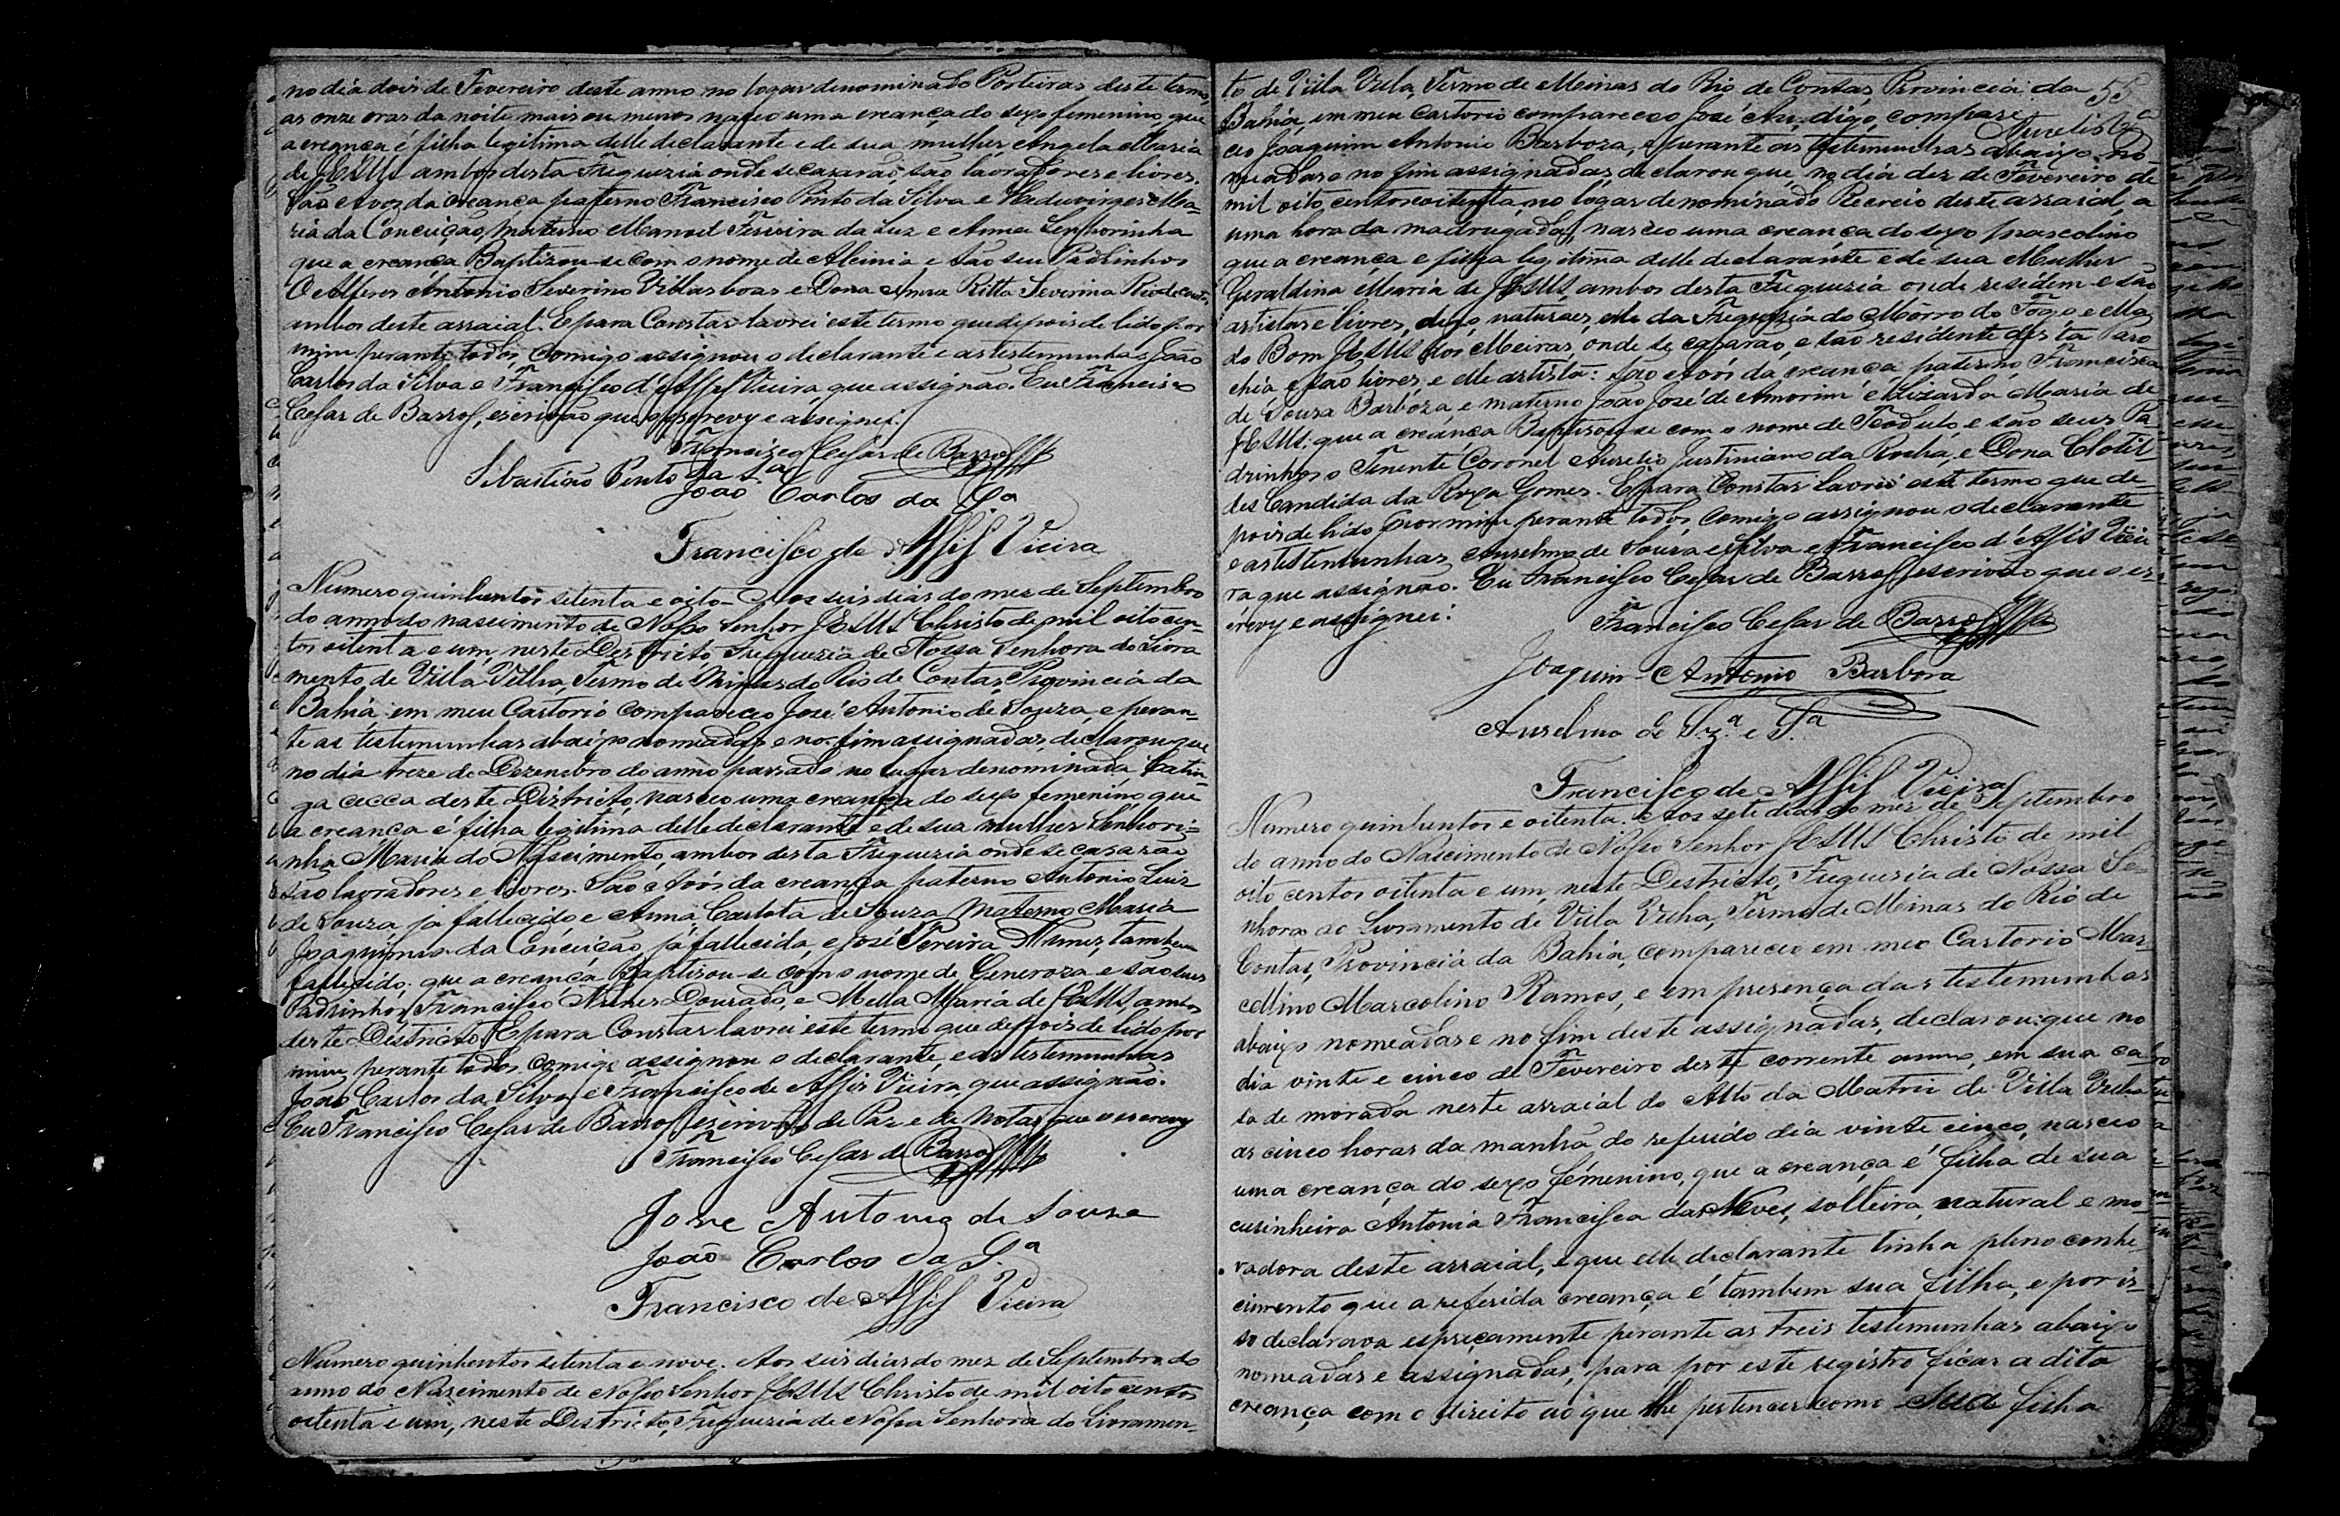 no dia dois de Fevereiro deste anno no logar denominado Porteiras deste termo,
as onze oras da noite mais ou menos nasceo uma creança do sexo femenino, que
a creança é filha legitima delle declarante e de sua mulher Angela Maria
de JESUS ambos desta Freguezia onde se casarão, são lavradores e livres.
São Avos da creança paterno Francisco Pinto da Silva e Heduvirges Ma-
ria da Conceição, materno Manoel Ferreira da Luz e Anna Senhorinha
que a creança Baptizou-se com o nome de Alcinia e são seu Padrinhos
O Alferes Antonio Severino Villasboas e Dona Anna Ritta Severina Rio de Contas,
ambos deste arraial. E para Constar lavrei este termo que depois de lido por
mim perante todos, comigo assignou o declarante e as testemunhas João
Carlos da Silva e Francisco d'Assis Vieira, que assignão. Eu Francisco
Cesar de Barros, escrivão que o escrevy e assignei.
Francisco Cesar de Barros
Sibastião Pento da Sª
João Carlos da Sª
Francisco de Assis Vieira
Numero quinhentos setenta e oito. Aos seis dias do mez de Septembro
do anno do nascimento de Nosso Senhor JESUS Christo de mil oito cen-
tos oitenta e um, neste Destricto, Freguezia de Nossa Senhora do Livra
mento de Villa Velha, Termo de Minas do Rio de Contas, Provincia da
Bahia em meu Cartorio compareceo José Antonio de Souza, e peran-
te as testemunhas abaixo nomeadas e no fim assignadas, declarou que
no dia treze de Dezembro do anno passado no lugar denominada Catin-
ga cecca deste Districto, nasceo uma creança do sexo femenino que
a creança é filha legitima delle declarante e de sua mulher Senhori=
nha Maria do Nascimento, ambos desta Freguezia onde se casarão
são lavradores e livres. São Avós da creança paterno Antonio Luiz
de Souza, já fallecido e Anna Carlota de Souza, Materno Maria
Joaquina da Conceição já fallecida, e José Pereira Nunes, tambem
fallecido; que a creança Baptisou-se com o nome de Generoza, e são seus
Padrinhos Francisco Nunes Dourado, e Mella Maria de JESUS, ambos
deste Destricto. E para Constar lavrei este termo que depois de lido por
mim perante todos, comigo assignou o declarante, e as testemunhas
João Carlos da Silva e Francisco de Assis Vieira, que assignão.
Eu Francisco Cesar de Barros, escrivão de Paz e de Notas que o escrevy
Francisco Cesar de Barros
Jose Antonio de Souza
João Carlos da Sª
Francisco de Assis Vieira
Numero quinhentos setenta e nove. Aos seis dias do mez de Septembro do
anno do Nascimento de Nosso Senhor JESUS Christo de mil oito centos
oitenta e um, neste Destricto, Freguezia de Nossa Senhora do Livramen-
55
to de Villa Velha, Termo de Minas do Rio de Contas, Provincia da
Bahia, em meu Cartorio compareceo José Au, digo, compare
ceo Joaquim Antonio Barboza, e perante as testemunhas abaixo no-
meadas e no fim assignadas, declarou que, no dia dez de Fevereiro de
mil oito centos e oitenta, no logar denominado Recreio deste arraial, a
uma hora da madrugada, nasceo uma creança do sexo mascolino
que a creança e filha legitima delle declarante e de sua Mulher
Geraldina Maria de JESUS, ambos desta Freguezia onde residem e são
artistas e livres, digo, naturaes, elle da Freguezia do Môrro do Fogo e ella
do Bom JESUS dos Meiras, onde se casarão, e são residente desta Paro
chia e são livres, e elle artista: São Avós da creança paterno, Francisca
de Souza Barboza, e materno João José de Amorim e Lizarda Maria de
JESUS: que a creança Baptisou-se com o nome de Teodulo, e são seus Pa-
drinhos o Tenente Coronel Aurelio Justiniano da Rocha, e Dona Clotil-
des Candida da Roxa Gomes. E para Constar lavrei este termo que de-
pois de lido por mim perante todos, comigo assignou o declarante
e as testemunhas Anselmo de Souza e Silva e Francisco d'Assis Viei
ra que assignão. Eu Francisco Cesar de Barros, escrivão que o es-
crevy e assignei.
Francisco Cesar de Barros
Joaquim Antonio Barboza
Anselmo de Sz.ª e S.ª
Francisco de Assis Vieira
Numero quinhentos e oitenta. Aos sete dias do mez de Septembro
do anno do Nascimento de Nosso Senhor JESUS Christo de mil
oito centos oitenta e um, neste Destricto, Freguezia de Nossa Se-
nhora do Livramento de Villa Velha, Termo de Minas do Rio de
Contas, Provincia da Bahia, compareceo em meo Cartorio Mar-
cellino Marcolino Ramos, e em presença das testemunhas
abaixo nomeadas e no fim deste assignadas, declarou: que no
dia vinte e cinco de Fevereiro deste corrente anno, em sua ca
sa de morada neste arraial do Alto da Matriz de Villa Velha
as cinco horas da manhã do referido dia vinte cinco, nasceo
uma creança do sexo femenino, que a creança é filha de sua
cusinheira Antonia Francisca das Neves, solteira, natural e mo-
radora deste arraial, e que elle declarante tinha pleno conhe-
cimento que a referida creança é tambem sua filha, e por is-
so declarava espreçamente perante as treis testemunhas abaixo
nomeadas e assignadas, para por este registro ficar a dita
creança com o direito ao que lhe pertencer como sua filha